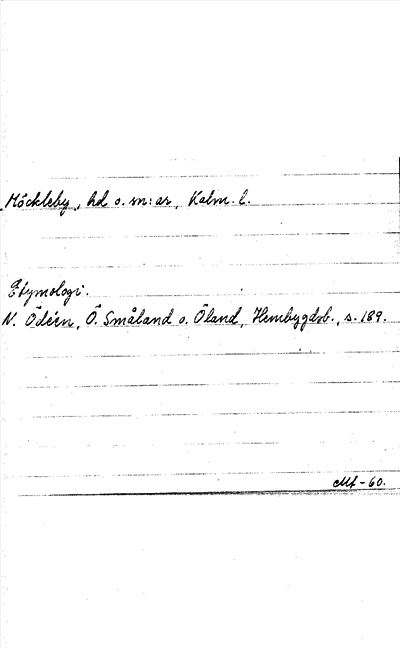 Möckleby, hd o. sn:ar, Kalm. l.
Etymologi.
N. Ödéen, Ö. Småland o. Öland, Hembygdsb., s. 189.
-60.